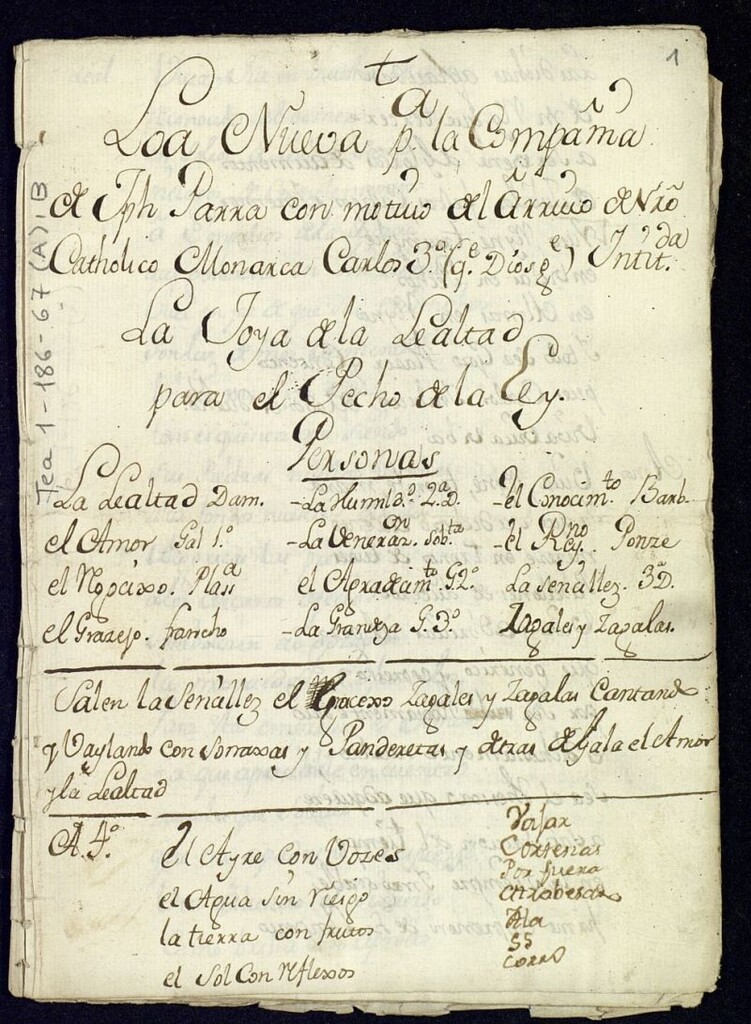 1
Loa Nueva p.ª la Compañia
de Jph Parra con motivo del Arrivo de Nrõ
Catholico Monarca Carlos 3.º (q.e Dios g.e) Intit.da
La Joya de la Lealtad
para el Pecho de la Ley.
Personas
La Lealtad Dam. - La Humild.d 2.ª D. - el Conocim.to Barb.
el Amor Gal 1.º - La Veneraz.on Sob.ta - el Reyno. Ponze
el Regocixo. Plas.a el Agradecim.to G. 2.º La Senzillez. 3.ª D.
el Grazejo. fancho - La Grandeza G. 3.º Zagales y Zagalas.
Salen la Senzillez el Gracexo Zagales y Zagalas Cantando
y Vaylando con Sonaxas y Panderetas y detras de Gala el Amor
y la Lealtad
A. 4.º
el Ayre con Vozes
el Agua Sin Riesgo
la tierra con frutos
el Sol Con Reflexos
Cortesias
Por fuera
Ala
SS
Corro
Tea 1-186-67 (A), B